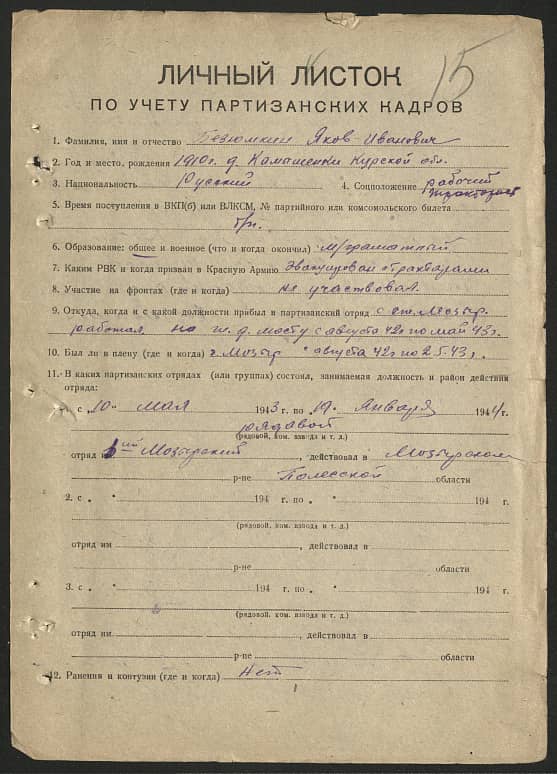 15
ЛИЧНЫЙ ЛИСТОК
ПО УЧЕТУ ПАРТИЗАНСКИХ КАДРОВ
1. Фамилия, имя и отчество Безюмкин Яков Иванович
2. Год и место, рождения 1910 г. д. Камашенки Курской обл.
3. Национальность Русский 4. Соцположение рабочий
тракторист
5. Время поступления в ВКП(б) или ВЛКСМ, № партийного или комсомольского билета
б/п.
6. Образование: общее и военное (что и когда окончил) м/грамотный
7. Каким РВК и когда призван в Красную Армию Эвакуирован с тракторами
8. Участие на фронтах (где и когда) не участвовал
9. Откуда, когда и с какой должности прибыл в партизанский отряд с ст. Мозырь
работал на ж.д. мосту с августа 42г по май 43г.
10. Был ли в плену (где и когда) г. Мозырь с августа 42г по 2.5.43г.
11. В каких партизанских отрядах (или группах) состоял, занимаемая должность и район действия
отряда:
1. с „10" мая 1943 г. по „19" Января 1944 г.
рядовой
(рядовой, ком. взвода и т. д.)
отряд 1ый Мозырский, действовал в Мозырском
р-не Полесской области
2. с „ " 194 г. по „ " 194 г.
(рядовой, ком. взвода и т. д.)
отряд им , действовал в
р-не области
3. с „ " 194 г. по „ " 194 г.
(рядовой, ком. взвода и т. д.)
отряд им , действовал в
р-не области
12. Ранения и контузии (где и когда) Нет